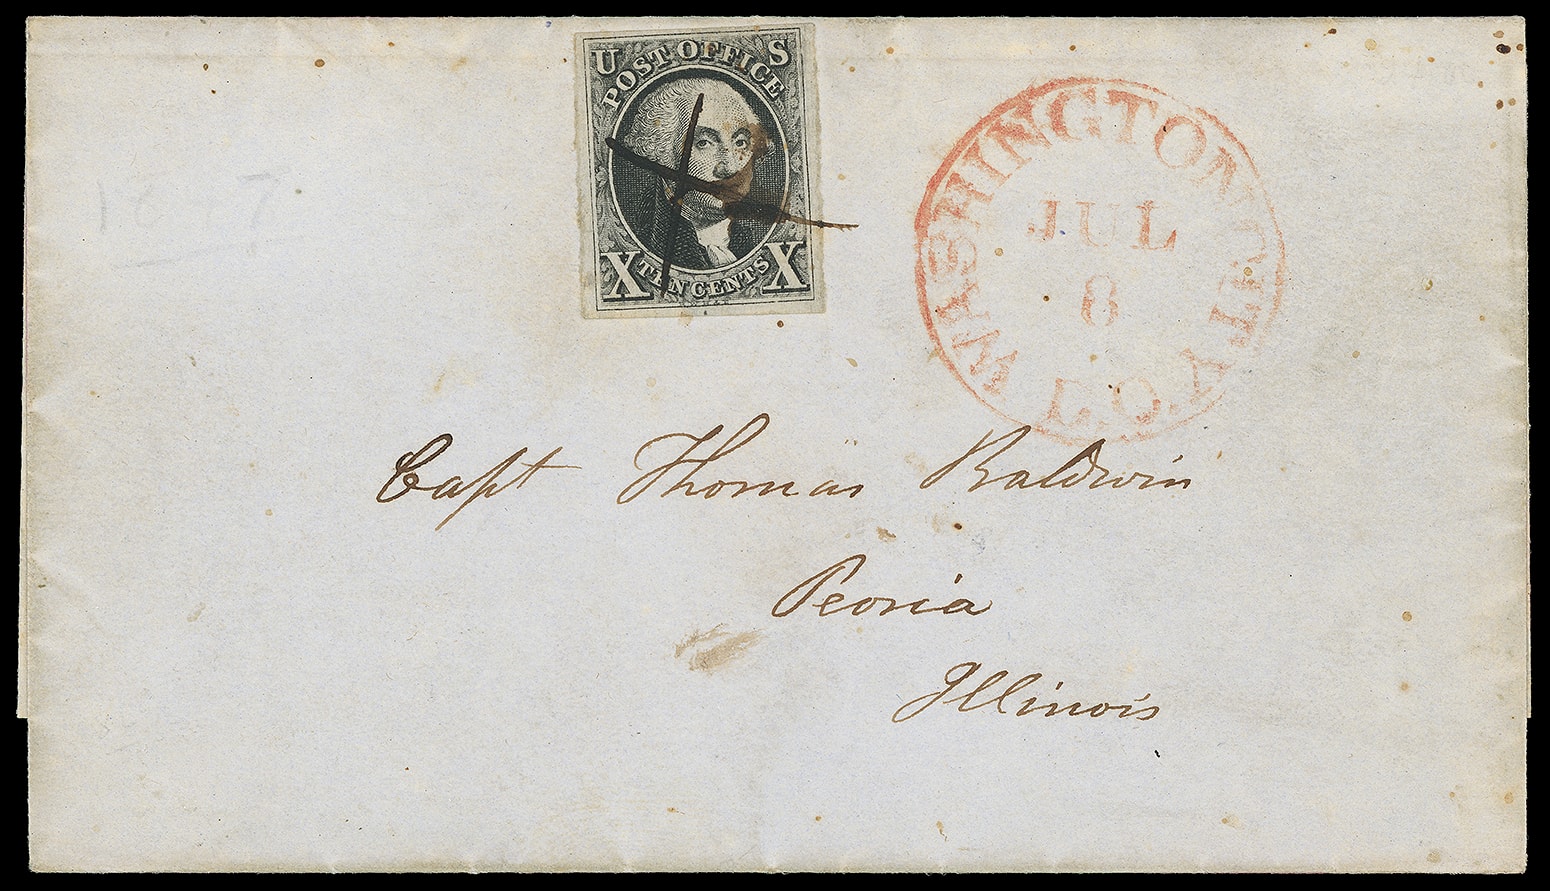 U S
POST OFFICE
X TEN CENTS X
WASHINGTON CITY D.C.
JUL
8
Capt Thomas Baldwin
Peoria
Illinois